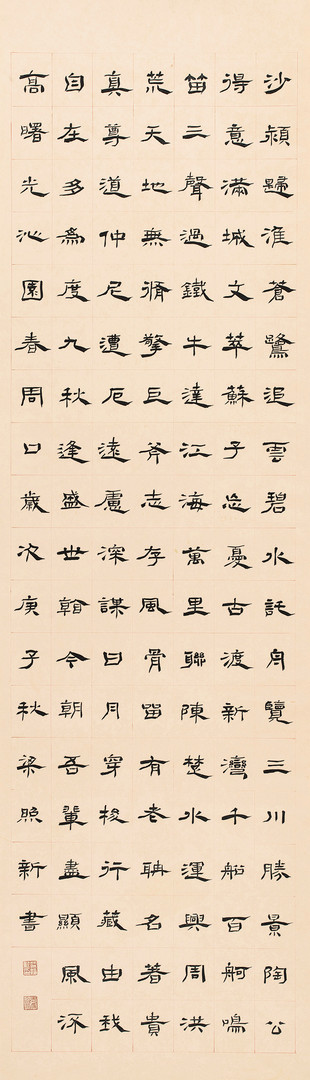 沙潁歸淮蒼鷺追雲碧水託舟覽三川勝景陶公
得意滿城文萃蘇子忘憂古渡新灣千船百舸鳴
笛三聲過鐵牛達江海萬里聯陳楚水運興周洪
荒天地無脩擎巨斧志存風骨留有老聃名著貴
真尊道仲尼遭厄遠慮深謀日月穿梭行藏由我
自在多為度九秋逢盛世看今朝吾輩盡顯風流
高曙光沁園春周口歲次庚子秋梁照新書